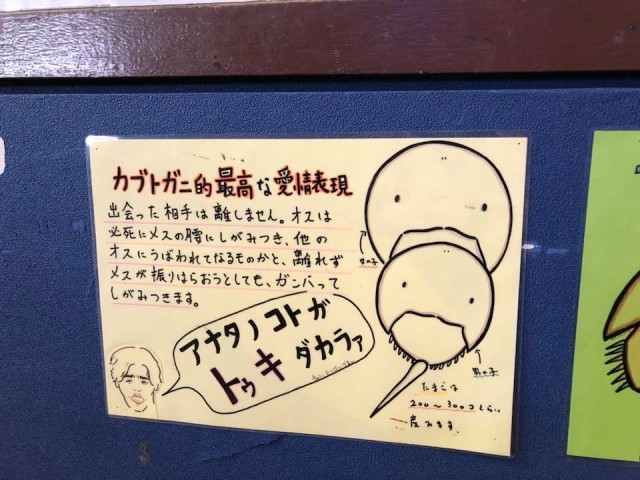 カブトガニ的最高な愛情表現
出会った相手は離しません。オスは
必死にメスの腰にしがみつき、他の
オスにうばわれてなるものかと、離れず
メスが振りはらおうとしても、ガンバって
しがみつきます。
アナタノコトガ
トゥキダカラァ
女の子
男の子
たまごは
200〜300コくらい
産みます。